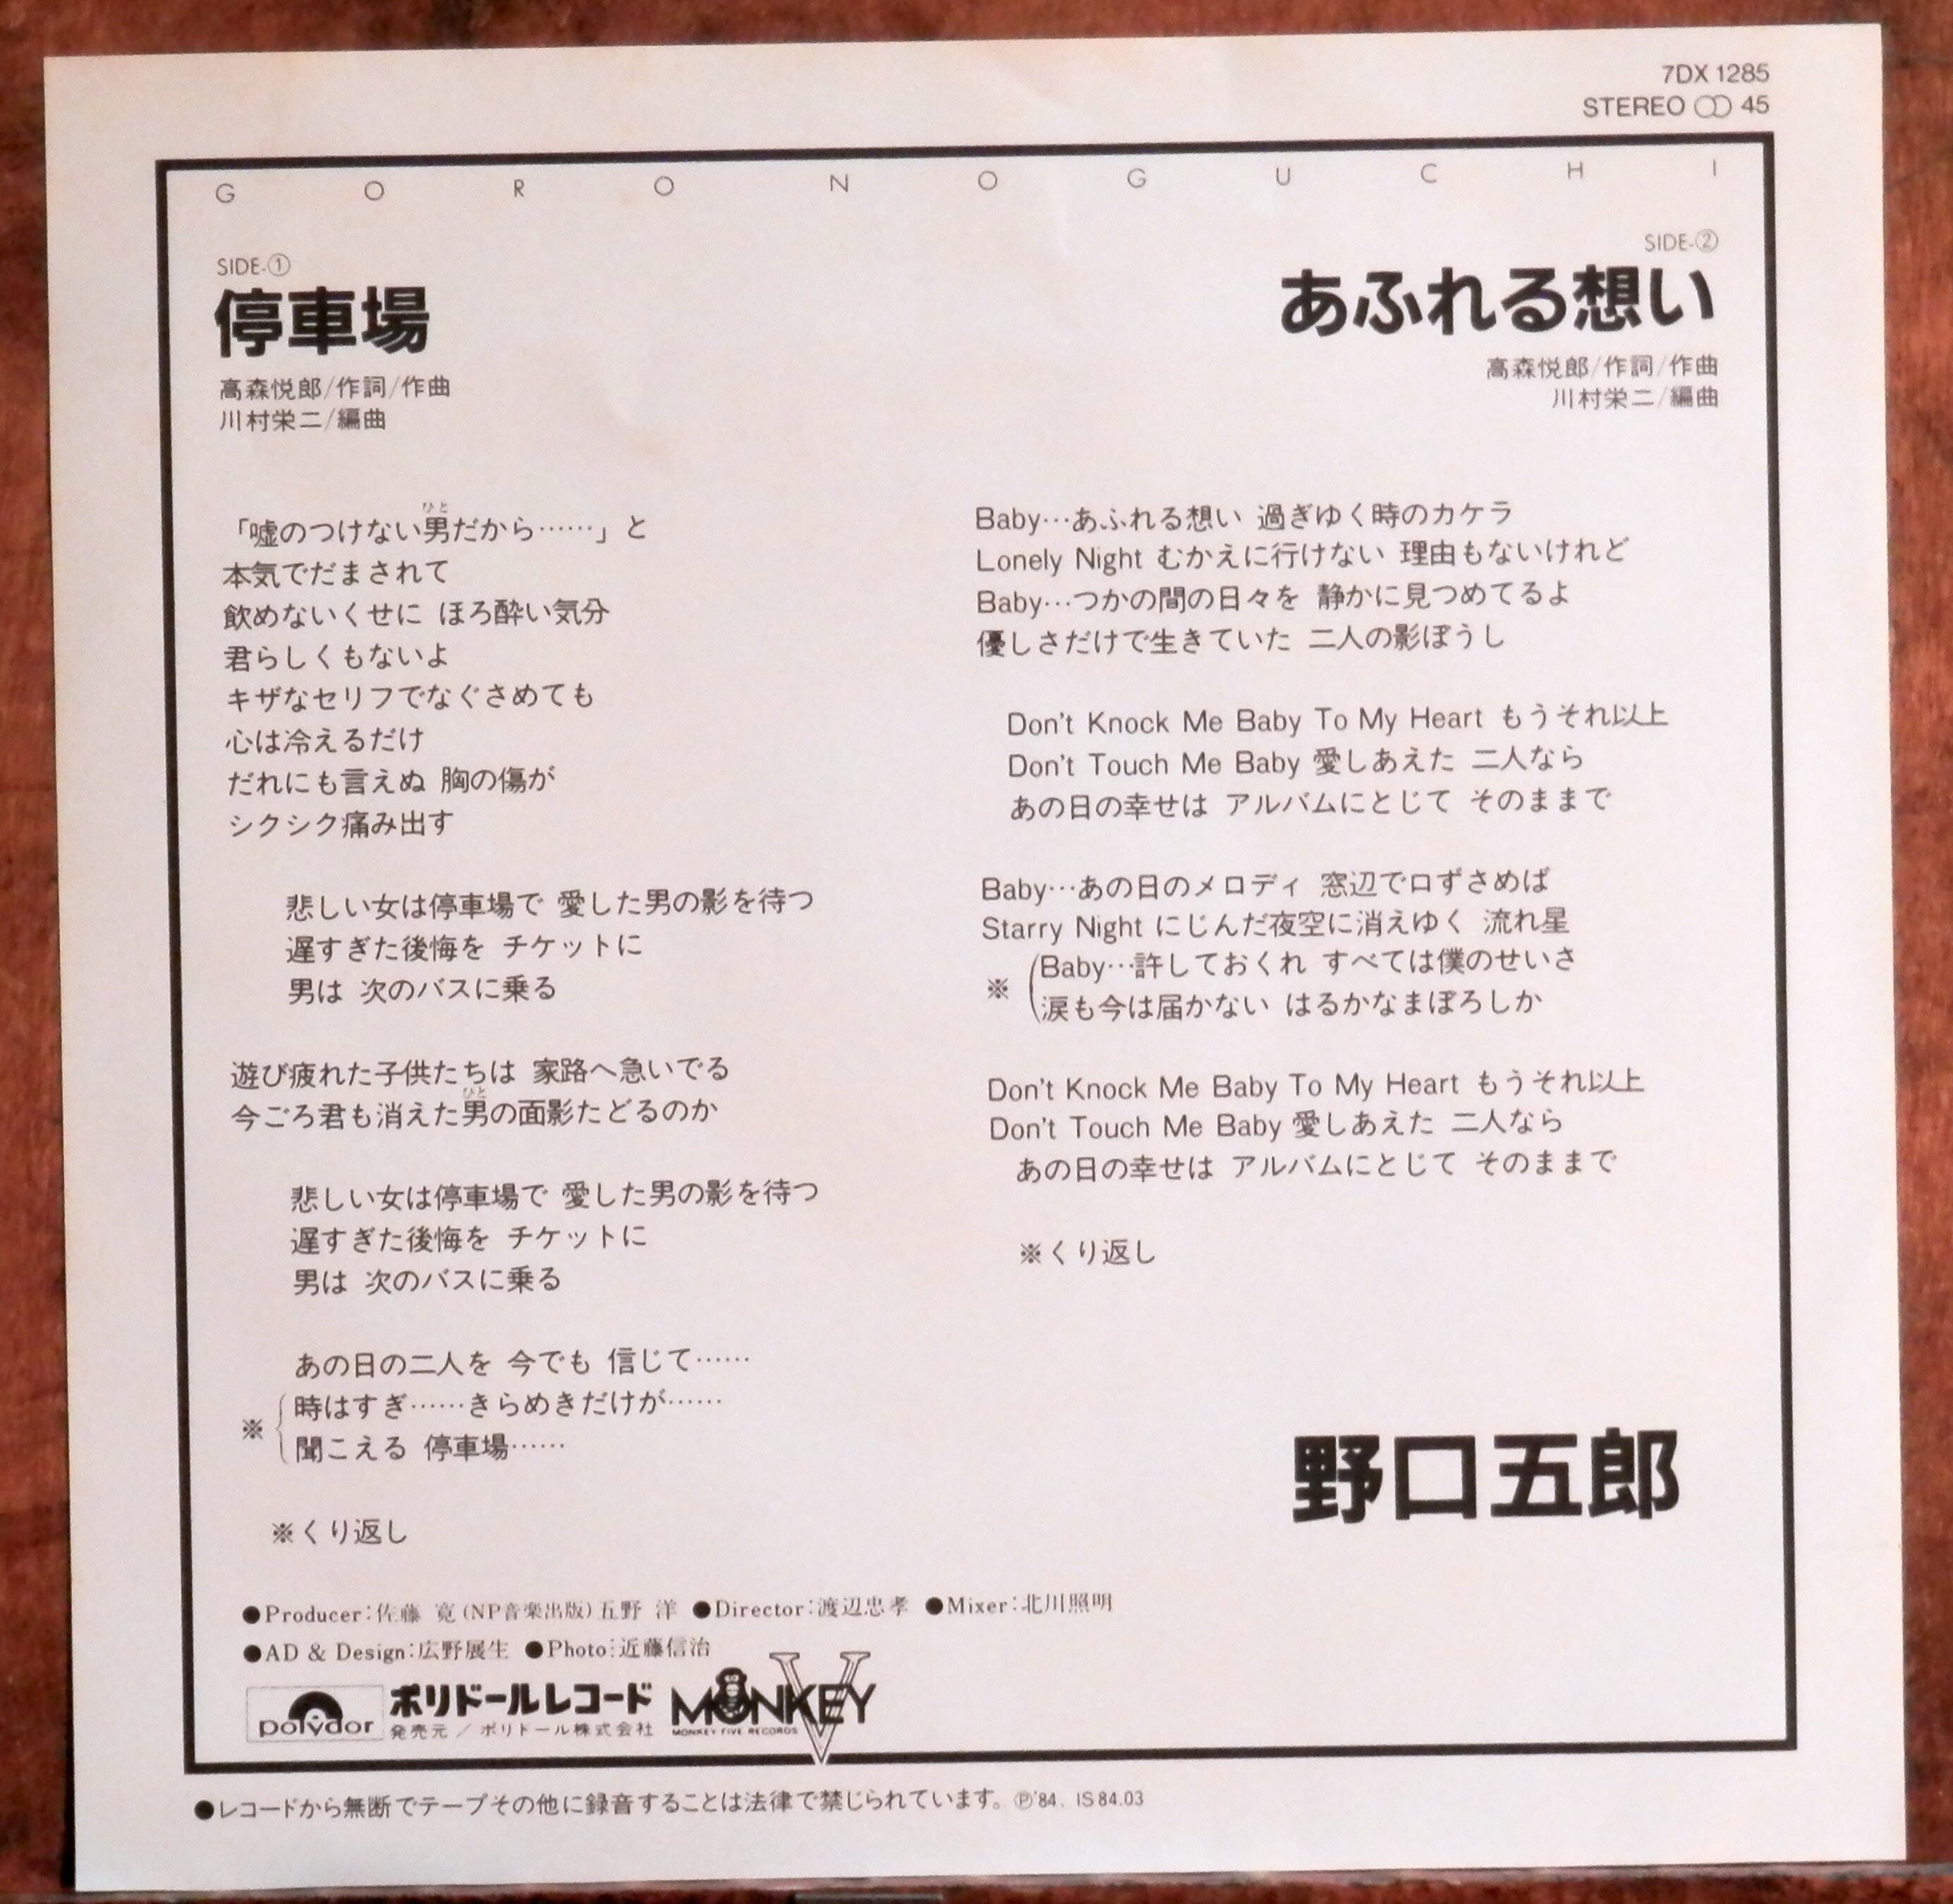 7DX 1285
STEREO 45
GORO NOGUCHI
SIDE-①
停車場
高森悦郎/作詞/作曲
川村栄二/編曲
「嘘のつけない男だから……」と
ひと
本気でだまされて
飲めないくせに ほろ酔い気分
君らしくもないよ
キザなセリフでなぐさめても
心は冷えるだけ
だれにも言えぬ 胸の傷が
シクシク痛み出す
悲しい女は停車場で 愛した男の影を待つ
遅すぎた後悔を チケットに
男は 次のバスに乗る
遊び疲れた子供たちは 家路へ急いでる
ひと
今ごろ君も消えた男の面影たどるのか
悲しい女は停車場で 愛した男の影を待つ
遅すぎた後悔を チケットに
男は 次のバスに乗る
あの日の二人を 今でも 信じて……
※ 時はすぎ……きらめきだけが……
聞こえる 停車場……
※くり返し
SIDE-②
あふれる想い
高森悦郎/作詞/作曲
川村栄二/編曲
Baby…あふれる想い 過ぎゆく時のカケラ
Lonely Night むかえに行けない 理由もないけれど
Baby…つかの間の日々を 静かに見つめてるよ
優しさだけで生きていた 二人の影ぼうし
Don't Knock Me Baby To My Heart もうそれ以上
Don't Touch Me Baby 愛しあえた 二人なら
あの日の幸せは アルバムにとじて そのままで
Baby…あの日のメロディ 窓辺で口ずさめば
Starry Night にじんだ夜空に消えゆく 流れ星
※ (Baby…許しておくれ すべては僕のせいさ
涙も今は届かない はるかなまぼろしか
Don't Knock Me Baby To My Heart もうそれ以上
Don't Touch Me Baby 愛しあえた 二人なら
あの日の幸せは アルバムにとじて そのままで
※くり返し
野口五郎
●Producer:佐藤 寛(NP音楽出版)五野 洋 ●Director:渡辺忠孝 ●Mixer:北川照明
●AD & Design:広野展生 ●Photo:近藤信治
polydor
ポリドールレコード
発売元/ポリドール株式会社
MONKEY V
MONKEY FIVE RECORDS
●レコードから無断でテープその他に録音することは法律で禁じられています。Ⓟ'84. IS 84.03